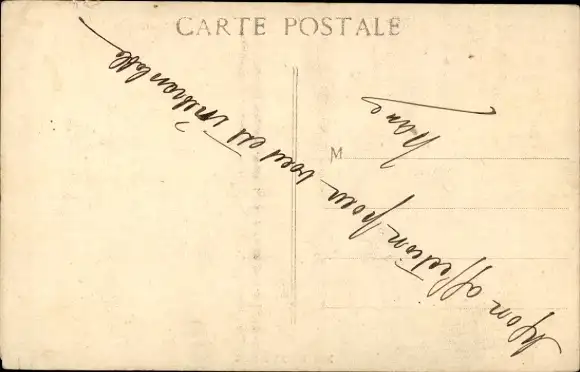 CARTE POSTALE
M
Mon affection pour vous est inébranlable